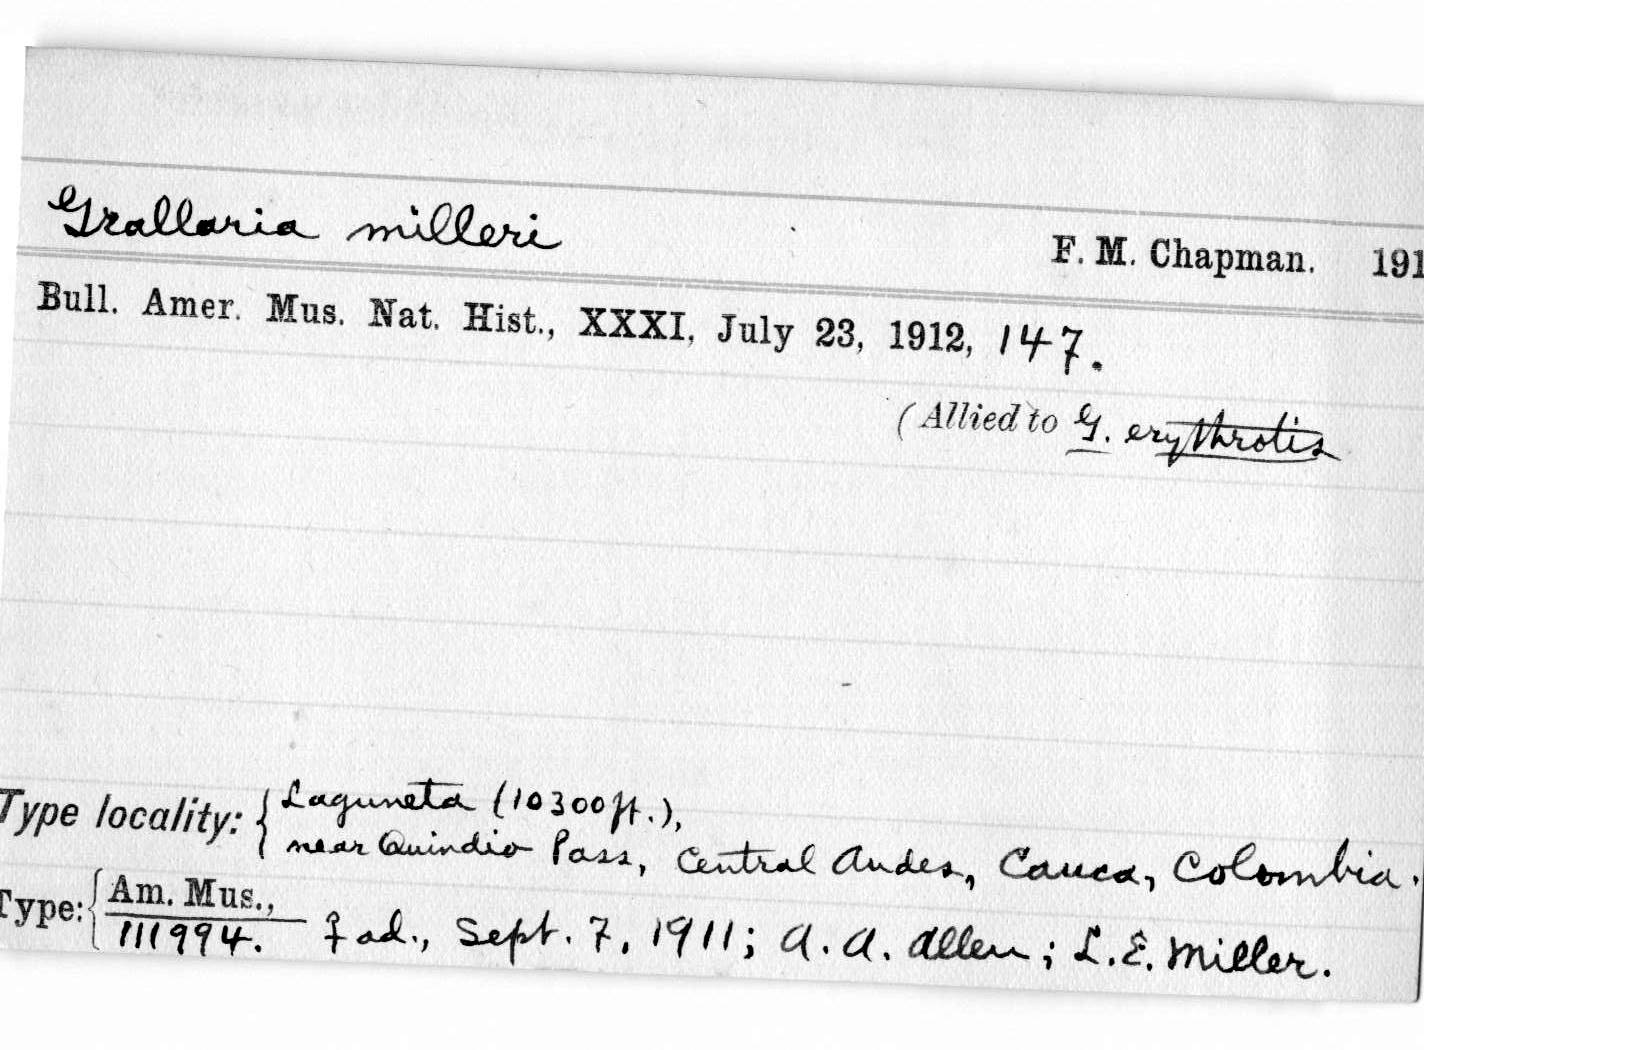 Grallaria milleri F. M. Chapman. 191
Bull. Amer. Mus. Nat. Hist., XXXI, July 23, 1912, 147.
(Allied to G. erythrotis
Type locality: { Laguneta (10300 ft.),
near Quindio Pass, Central Andes, Cauca, Colombia.
Type: { Am. Mus.,
111994. ♀ ad., Sept. 7, 1911; A. A. Allen; L. E. Miller.